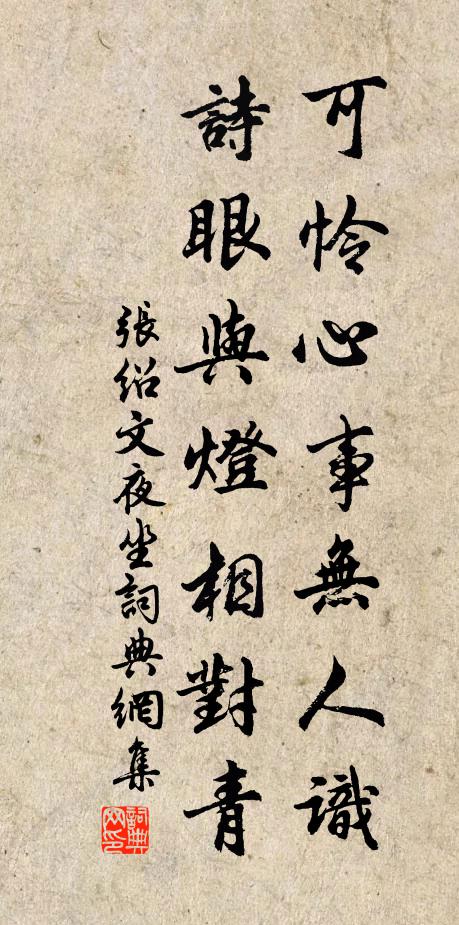 可怜心事無人識
詩眼與燈相對青
張紹文夜坐詞典網集
詞典网印